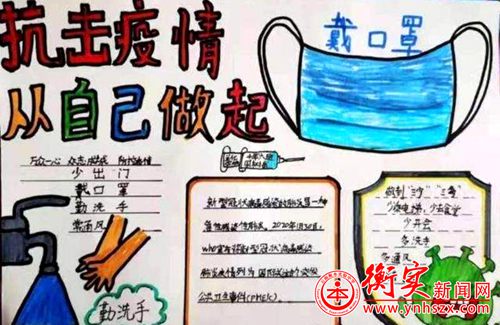 抗击疫情
从自己做起
戴口罩
万众一心 众志成城
少出门
戴口罩
勤洗手
常通风
勤洗手
新型冠状病毒感染的肺炎是一种
急性感染性肺炎。2020年1月30日,
WHO宣布将新型冠状病毒感染
肺炎疫情列为国际关注的突发
公共卫生事件(PHEIC)。
做到"三少""三多"
少开会
多洗手
多通风
衡实新闻网
www.ynhszx.com